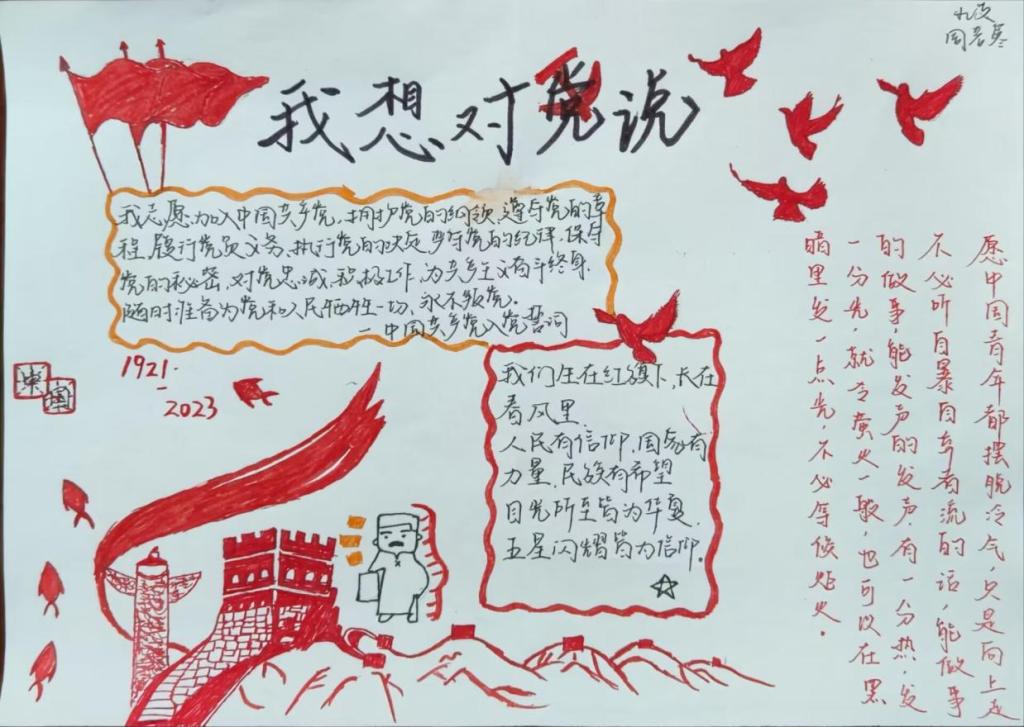 我想对党说
我志愿加入中国共产党，拥护党的纲领，遵守党的章
程，履行党员义务，执行党的决定，严守党的纪律，保守
党的秘密，对党忠诚，积极工作，为共产主义奋斗终身，
随时准备为党和人民牺牲一切，永不叛党。
—中国共产党入党誓词
1921.
-
2023
我们生在红旗下，长在
春风里
人民有信仰，国家有
力量，民族有希望
目光所至皆为华夏，
五星闪耀皆为信仰。
愿中国青年都摆脱冷气，只是向上走
不必听自暴自弃者流的话，能做事
的做事，能发声的发声。有一分热，发
一分光，就令萤火一般，也可以在黑
暗里发一点光，不必等候炬火。